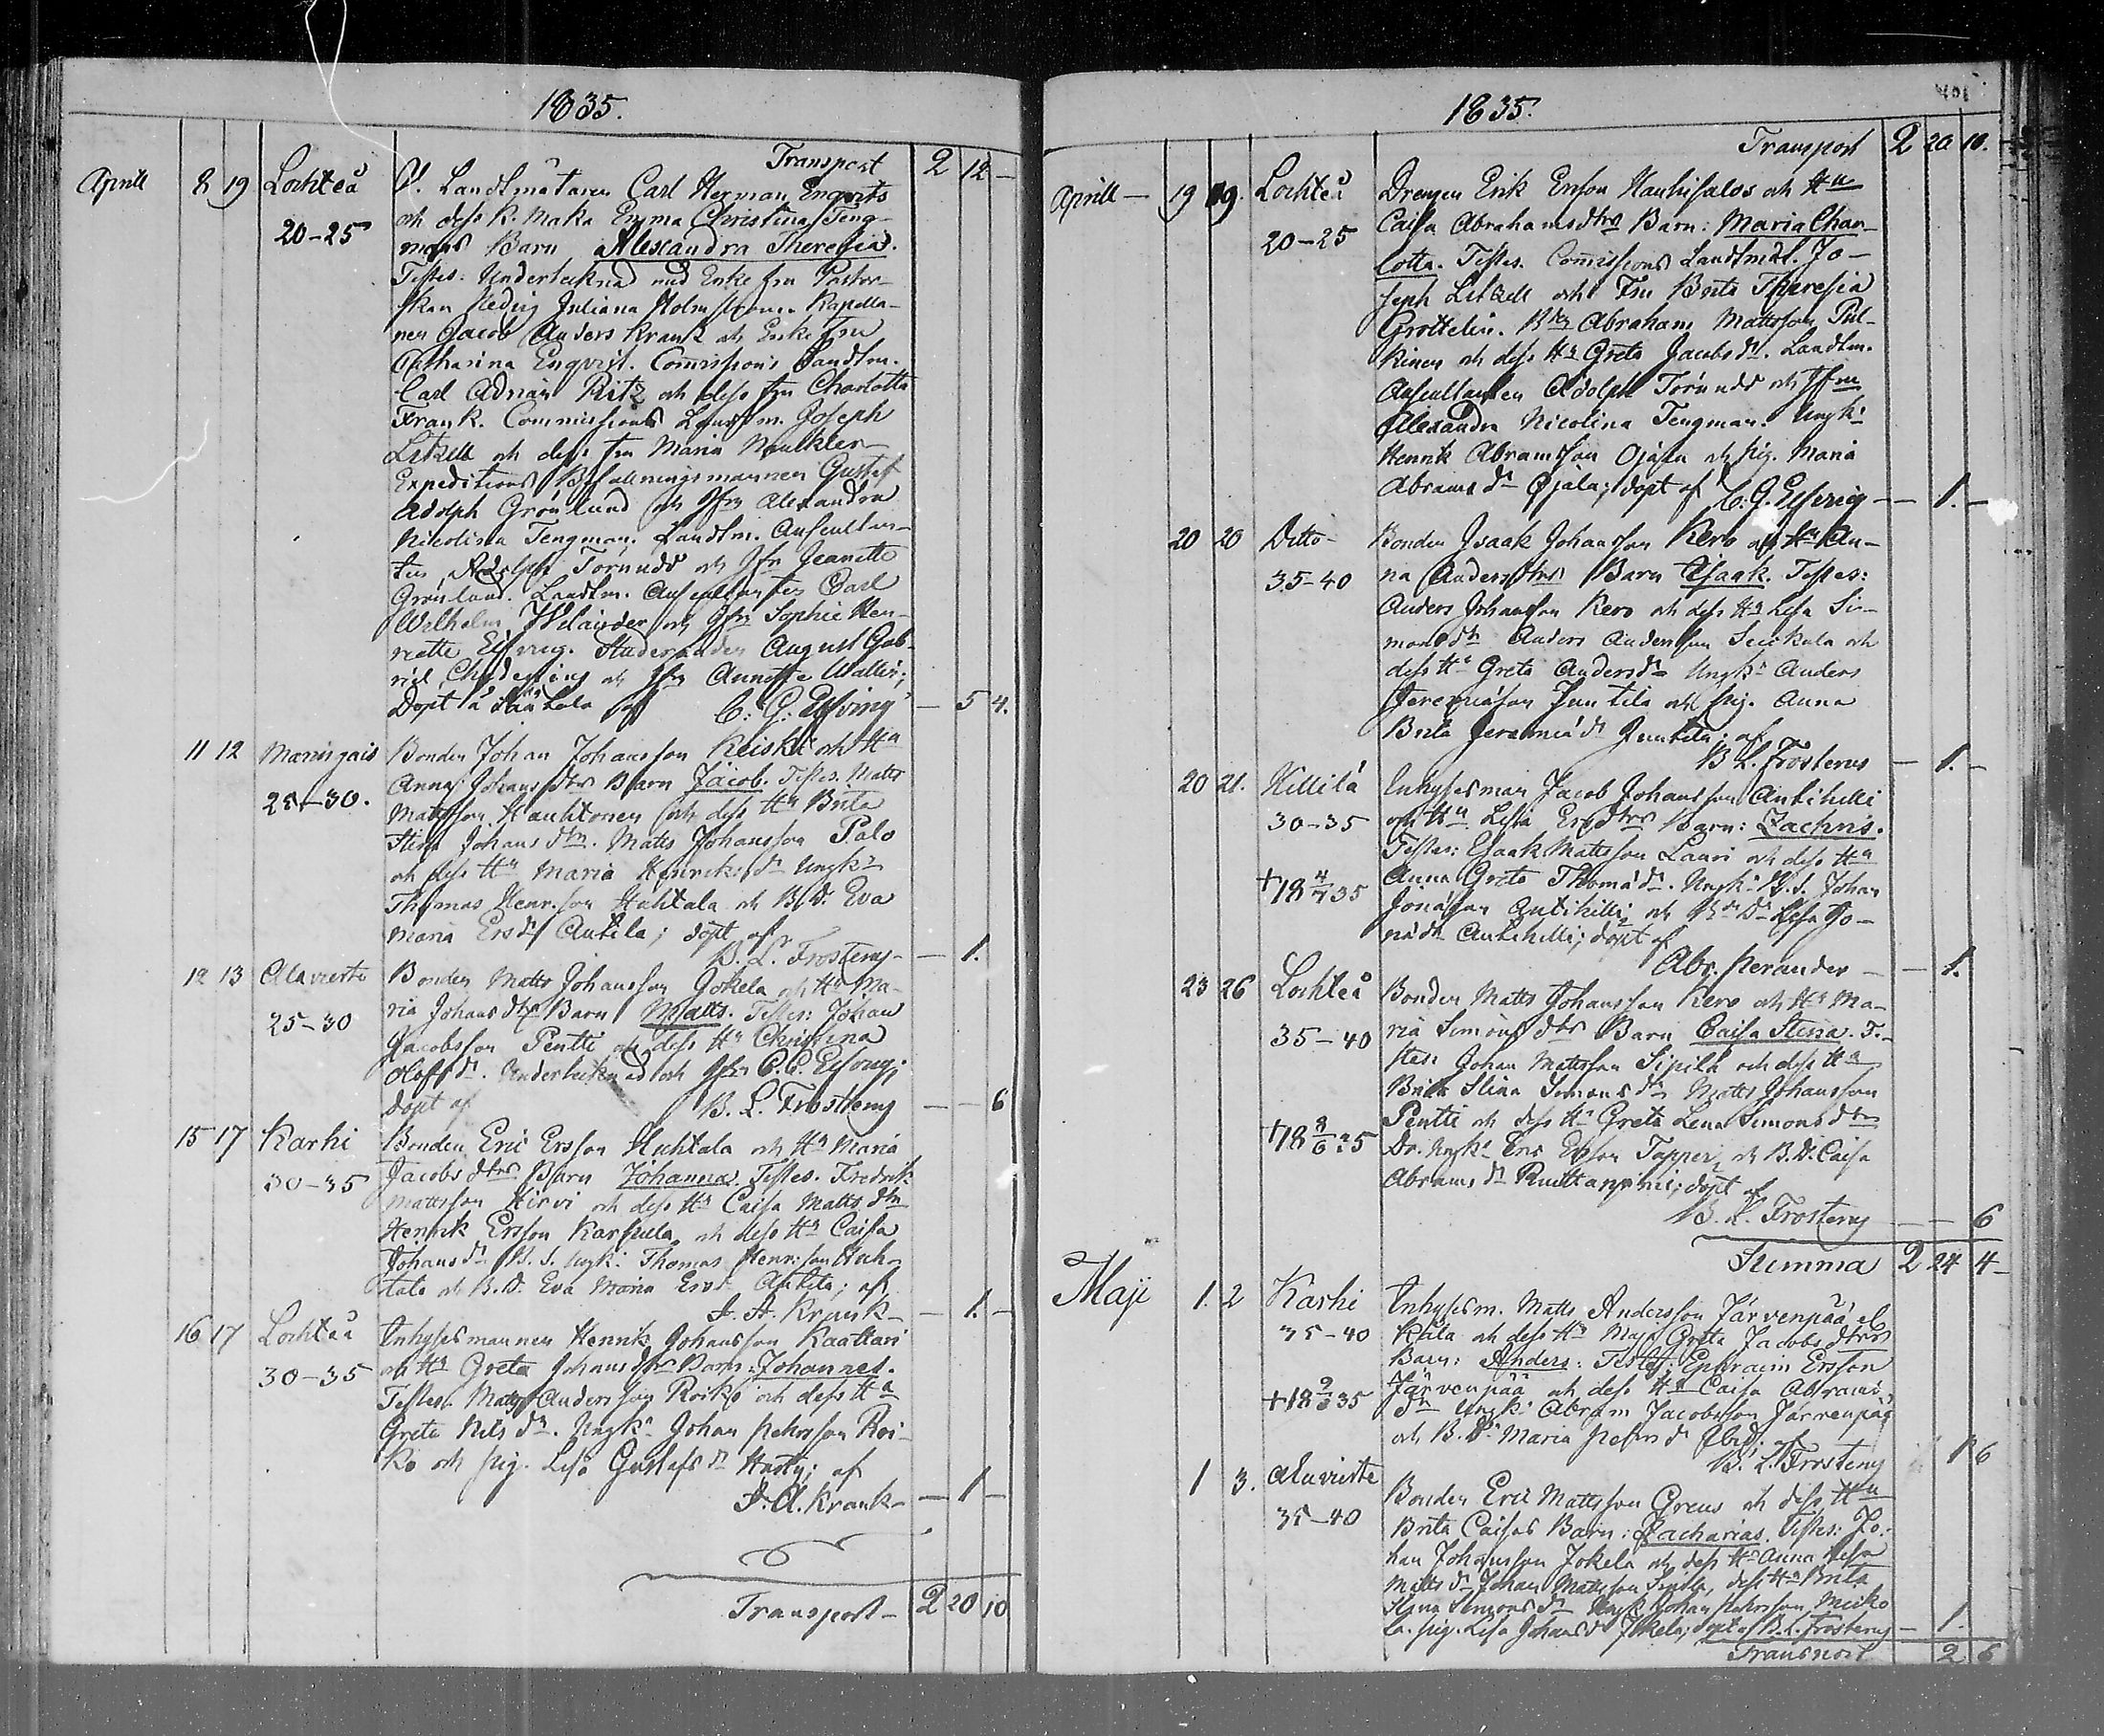 1835.
Transport 2 12 –
Aprill 8 19 Lochteå V. Landtmätaren Carl Herman Enqvists
20–25 och dess k. Maka Emma Christina Teng-
mans Barn Alexandra Theresia.
Testes: Undertecknad med Enke fru Pastor-
skan Hedvig Juliana Holmström. Kapella-
nen Jacob Anders Krank och Enke fru
Catharina Enqvist. Commissions Landtm.
Carl Adrian Ritz och dess fru Charlotta
Frank. Commissions Landtm. Joseph
Litzell och dess fru Maria
Expeditions Befallningsmannen Gustaf
Adolph Grönlund och Jfru Alexandra
Nicolina Tengman. Landtm. Auscultan-
ten Adolph Törnudd och Jfr Jeanette
Grönlund. Landtm. Auscultanten Carl
Wilhelm Welander och Jfr Sophie Hen-
riette Elfving. Studeranden August Gab-
riel Chydenius och Jfr Annette Wallin;
Döpt å af C. G. Elfving – 5 4.
11 12 Maringais Bonden Johan Johansson Keiski och Hu
25–30. Anna Johansdtrs Barn Jacob. Testes. Matts
Mattsson Hauhtonen och dess Hu Brita
Stina Johansdtr. Matts Johansson Palo
och dess Hu Maria Henriksdr Ungkn
Thomas Henr.son Huhtala och B.D. Eva
Maria Ersdr Antila; döpt af
B. L. Frosterus – 1.
12 13 Alavieste Bonden Matts Johansson Jokela och Hu Ma-
25–30 ria Johansdtrs Barn Matts. Testes: Johan
Jacobsson Pentti och dess Hu Christina
Olofsdr. Undertecknad och Jfr C. C. Elfving;
döpt af B. L. Frosterus – – 6
15 17 Karhi Bonden Eric Ersson Huhtala och Hu Maria
30–35 Jacobsdtrs Barn Johanna. Testes. Fredrik
Mattsson Hirvi och dess Hu Caisa Mattsdtr
Henrik Ersson Karhula och dess Hu Caisa
Johansdr B. S. Ungk. Thomas Henr:son Huh-
tala och B. D. Eva Maria Ersdr Antila; af
J. A. Krank – 1. –
16 17 Lochteå Inhysesmannen Henrik Johansson Kaattari
30–35 och Hu Greta Johansdtrs Barn: Johannes.
Testes. Matts Andersson Roiko och dess Hu
Greta Nilsdr. Ungkn Johan Pehrsson Roi-
ko och pig. Lisa Gustafsdr Hasty; af
J. A. Krank – – 1 –
Transport – 2 20 10
1835.
401
Transport 2 20 10.
Aprill – 19 19. Lochteå Drengen Erik Ersson Hauhisalos och Hu
20–25 Caisa Abrahamsdtrs Barn: Maria Char-
lotta. Testes. Commissions Landtmät. Jo-
seph Litzell och Fru Brita Theresia
Grottelin. Bdn Abraham Mattsson Pul-
kinen och dess Hu Greta Jacobsdr. Landtm.
Auscultanten Adolph Törnudd och Jfru
Alexandra Nicolina Tengman. Ungkn
Henrik Abramsson Ojala och pig. Maria
Abramsdr Ojala; döpt af C. G. Elfving – – 1. –
20 20 Ditto – Bonden Isaak Johansson Kero och Hu An-
35–40 na Andersdtrs Barn Esaak. Testes:
Anders Johansson Kero och dess Hu Lisa Si-
monsdtr Anders Andersson och
dess Hu Greta Andersdr Ungkn Anders
Jeremiason Juntila och pig. Anna
Brita Jeremiædr Juntila; af
B L. Frosterus – 1. –
20 21. Killilä Inhysesman Jacob Johansson Antihilli
30–35 och Hu Lisa Ersdtrs Barn: Zachris.
Testes: Esaak Mattsson Lauri och dess Hu
+18 4/7 35 Anna Greta Thomædr. Ungkn B. S. Johan
Jonasson Antihilli och Bdn Dr Lisa Jo-
nædr Antihilli; döpt af
Abr. Perander – – 1.
23 26 Lochteå Bonden Matts Johansson Kero och Hu Ma-
35–40 ria Simonsdtrs Barn Caisa Stina. Te-
stes: Johan Mattsson Sipilä och dess Hu
Brita Stina Simonsdr Matts Johansson
Pentti och dess Hu Greta Lena Simonsdtr
+18 8/6 35 Dr. Ungkn Eric Ersson Topper och B. D. Caisa
Abramsdr; döpt af
B. L. Frosterus – – 6
Summa 2 24 4 –
Maji 1. 2 Karhi Inhysesm. Matts Andersson Järvenpää el.
35–40 Kala och dess Hu Maja Greta Jacobsdtrs
Barn: Anders: Testes: Ephraim Ersson
+18 9/ 35 Järvenpää och dess Hu Caisa Abrams
dtr Ungkn Abram Jacobsson Järvenpää
och B. Dr Maria Pehrsdr ibid; af
B. L. Frosterus 1 6
1 3. Alavieste Bonden Eric Mattsson Greus och dess Hu
35–40 Brita Caisas Barn: Zacharias. Testes: Jo-
han Johansson Jokela och dess Hu Anna Lisa
Mattsdr Johan Mattsson Sipilä, dess Hu Brita
Stina Simonsdr Ungk. Johan Pehrsson Meiko
la. pig. Lisa Johansdr Jokela; döpt af B. L. Frosterus – 1.
Transport 2 6